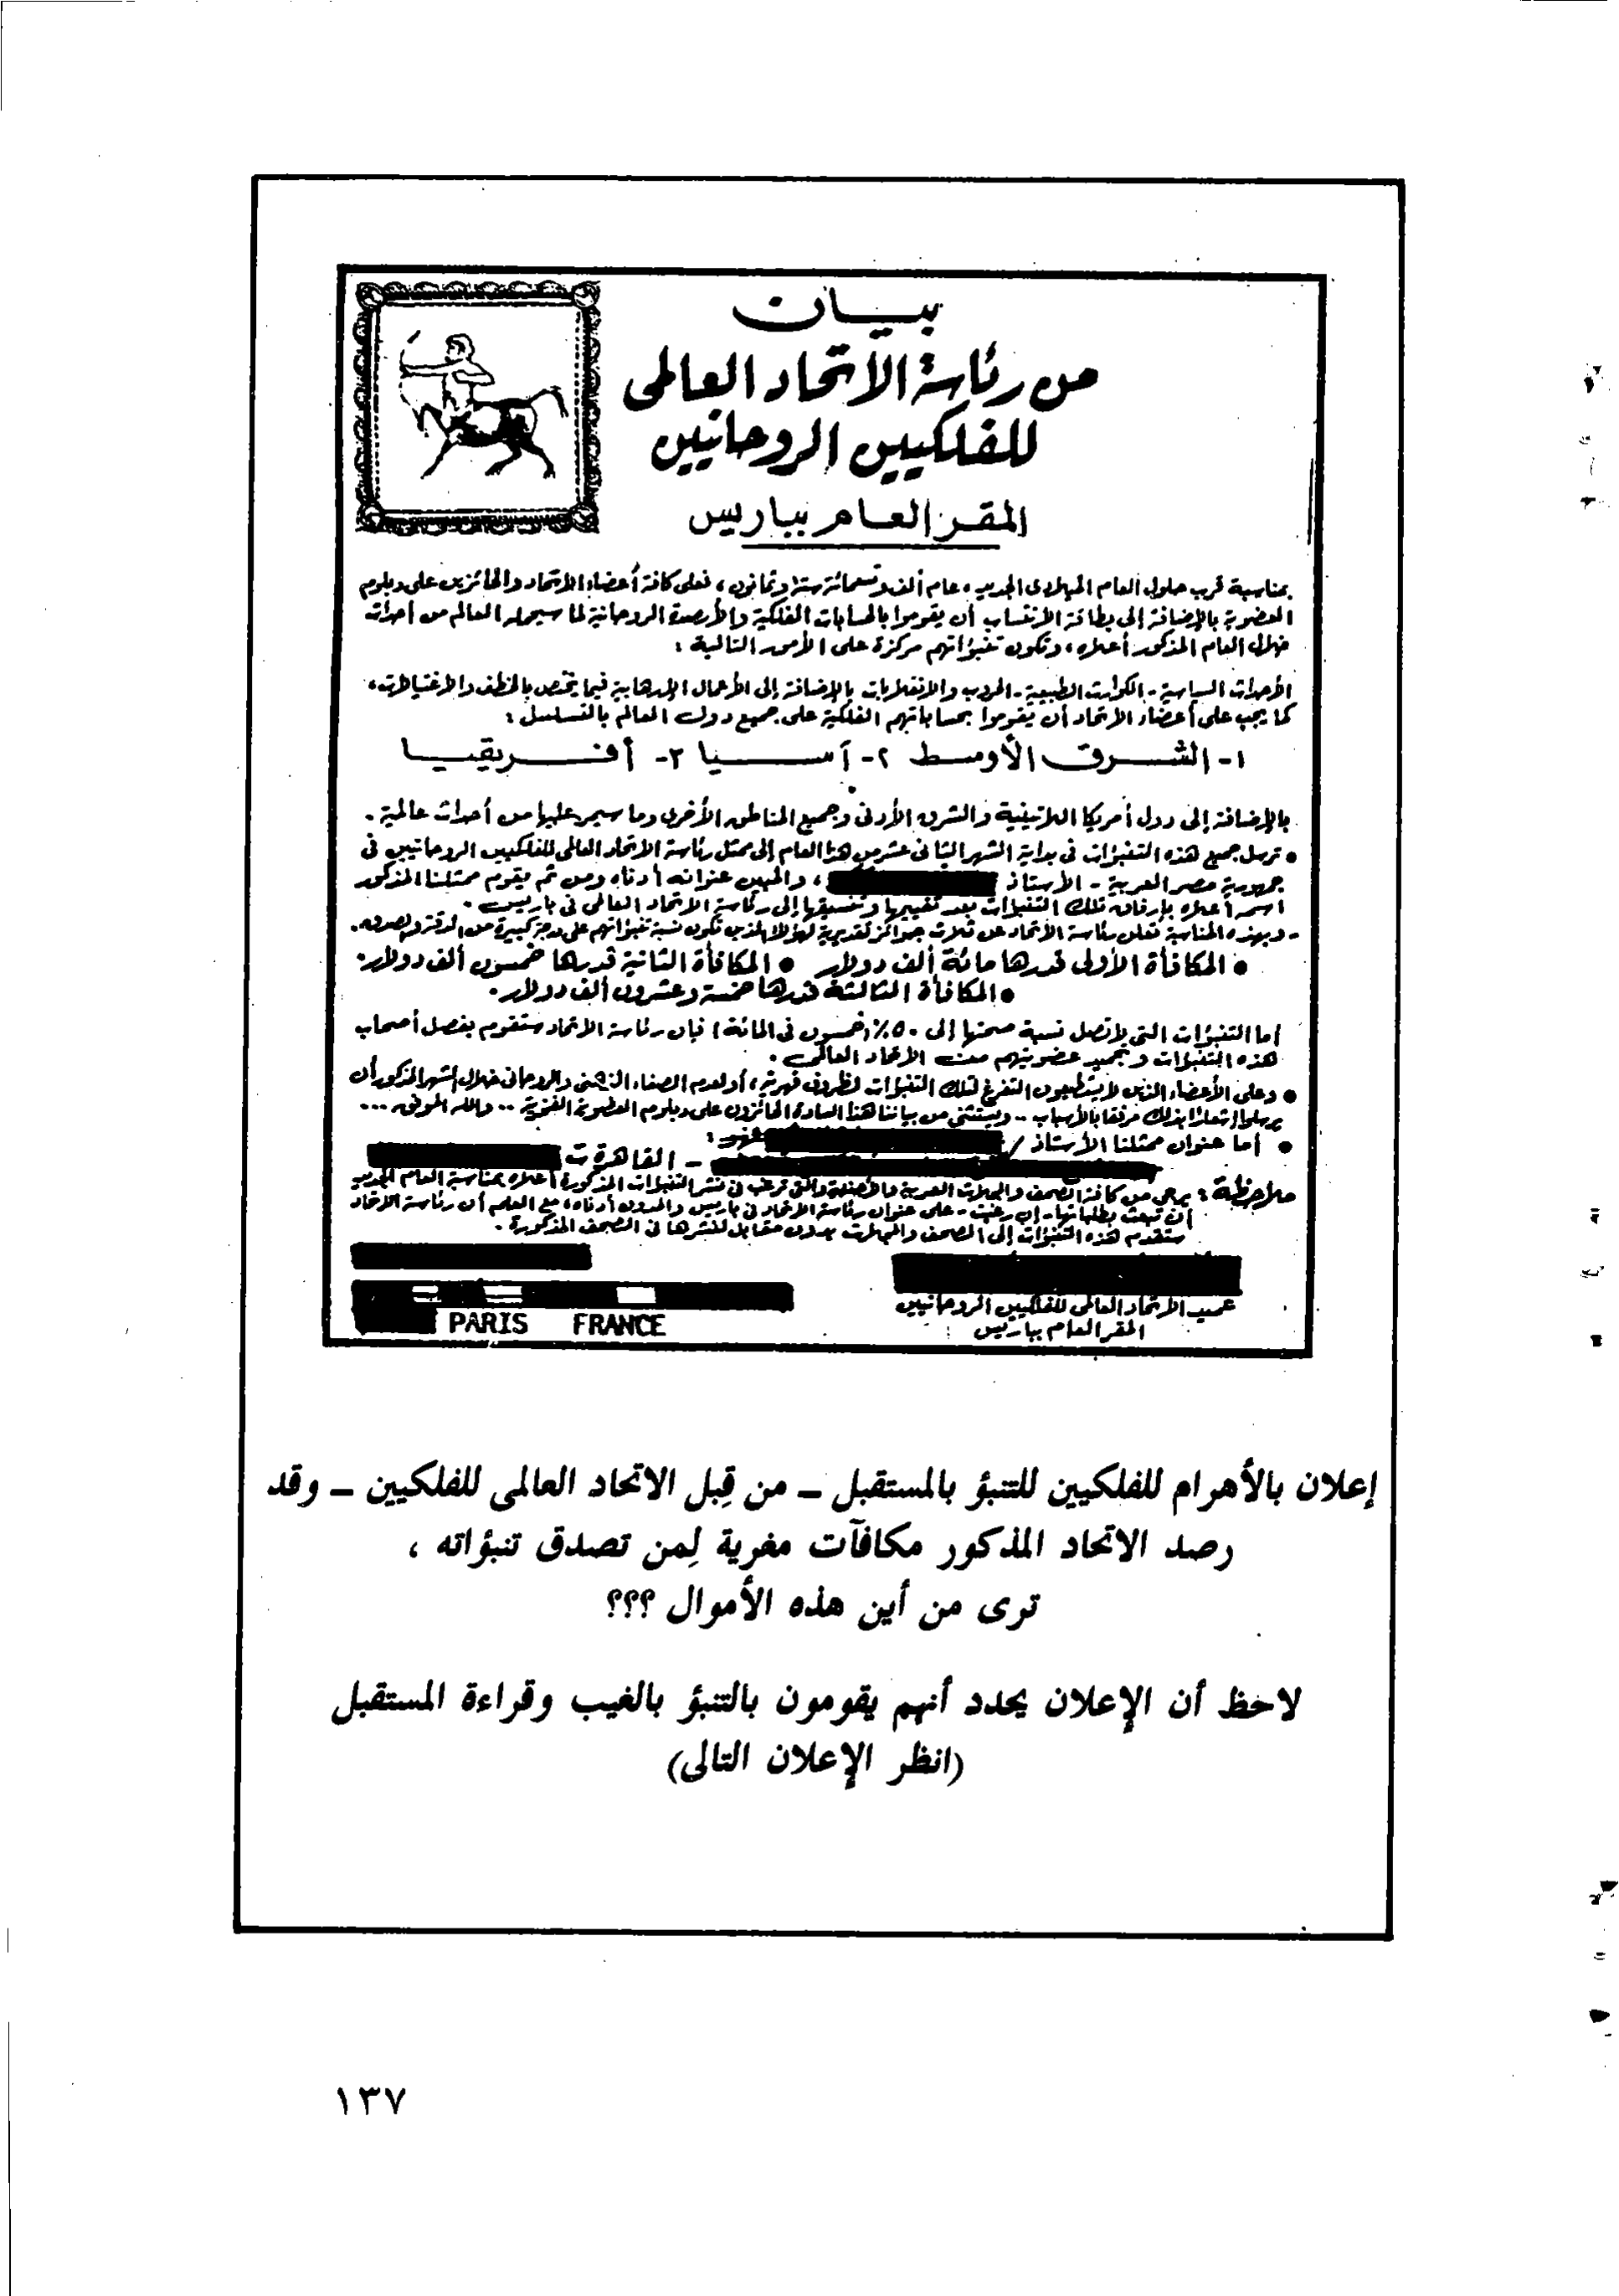 بيان
من رئاسة الاتحاد العالمى
للفلكيين الروحانيين
المقر العام بباريس
بمناسبة قرب حلول العام الميلادى الجديد، عام ألف وتسعمائة ستة وثمانون، فعلى كافة أعضاء الاتحاد والحائزين على دبلوم
العضوية بالإضافة إلى بطاقة الانتساب أن يقوموا بالحسابات الفلكية والأرصدة الروحانية لما سيحمله العالم من أحداث
خلال العام المذكور أعلاه، وتكون تنبؤاتهم مركزة على الأمور التالية:
الأحداث السياسية - الكوارث الطبيعية - الحروب والانقلابات بالإضافة إلى الأعمال الإرهابية فيما يختص بالخطف والاغتيالات،
كما يجب على أعضاء الاتحاد أن يقوموا بحساباتهم الفلكية على جميع دول العالم بالتسلسل:
١- الشرق الأوسط ٢- آسيا ٣- أفريقيا
بالإضافة إلى دول أمريكا اللاتينية والشرق الأدنى وجميع المناطق الأخرى وما سيمر عليها من أحداث عالمية.
• ترسل جميع هذه التنبؤات فى بداية الشهر الثانى عشر من هذا العام إلى ممثل رئاسة الاتحاد العالمى للفلكيين الروحانيين فى
جمهورية مصر العربية - الأستاذ ، والمبين عنوانه أدناه ومن ثم يقوم ممثلنا المذكور
اسمه أعلاه بإرفاق تلك التنبؤات بعد تقييمها وتنسيقها إلى رئاسة الاتحاد العالمى فى باريس.
- وبهذه المناسبة تعلن رئاسة الاتحاد عن ثلاث جوائز تقديرية لهؤلاء الذين تكون نسبة تنبؤاتهم على درجة كبيرة من الدقة والصدق.
• المكافأة الأولى قدرها مائة ألف دولار • المكافأة الثانية قدرها خمسون ألف دولار.
• المكافأة الثالثة قدرها خمسة وعشرون ألف دولار.
أما التنبؤات التى لا تصل نسبة صحتها إلى ٥٠٪ (خمسون فى المائة) فإن رئاسة الاتحاد ستقوم بفصل أصحاب
هذه التنبؤات وتجميد عضويتهم من الاتحاد العالمى.
• وعلى الأعضاء الذين لا يستطيعون التفرغ لتلك التنبؤات لظروف قهرية، أو لعدم الصفاء الذهنى والروحانى خلال الشهر المذكور أن
يرسلوا إشعارًا بذلك مرفقا بالأسباب .. ويستثنى من بياننا هذا السادة الحائزون على دبلوم العضوية الفخرية .. والله الموفق ...
• أما عنوان ممثلنا الأستاذ / فهو:
- القاهرة ت
ملاحظة: يرجى من كافة الصحف والمجلات العربية والأجنبية والتى ترغب فى نشر التنبؤات المذكورة أعلاه بمناسبة العام الجديد
أن تبعث بطلباتها - إن رغبت - على عنوان رئاسة الاتحاد فى باريس والمدون أدناه، مع العلم أن رئاسة الاتحاد
ستقدم هذه التنبؤات إلى الصحف والمجلات بدون مقابل لنشرها فى الصحف المذكورة.
عميد الاتحاد العالمى للفلكيين الروحانيين
المقر العام بباريس
PARIS FRANCE
إعلان بالأهرام للفلكيين للتنبؤ بالمستقبل – من قِبل الاتحاد العالمى للفلكيين – وقد
رصد الاتحاد المذكور مكافآت مغرية لِمن تصدق تنبؤاته ،
ترى من أين هذه الأموال ؟؟؟
لاحظ أن الإعلان يحدد أنهم يقومون بالتنبؤ بالغيب وقراءة المستقبل
(انظر الإعلان التالى)
١٣٧